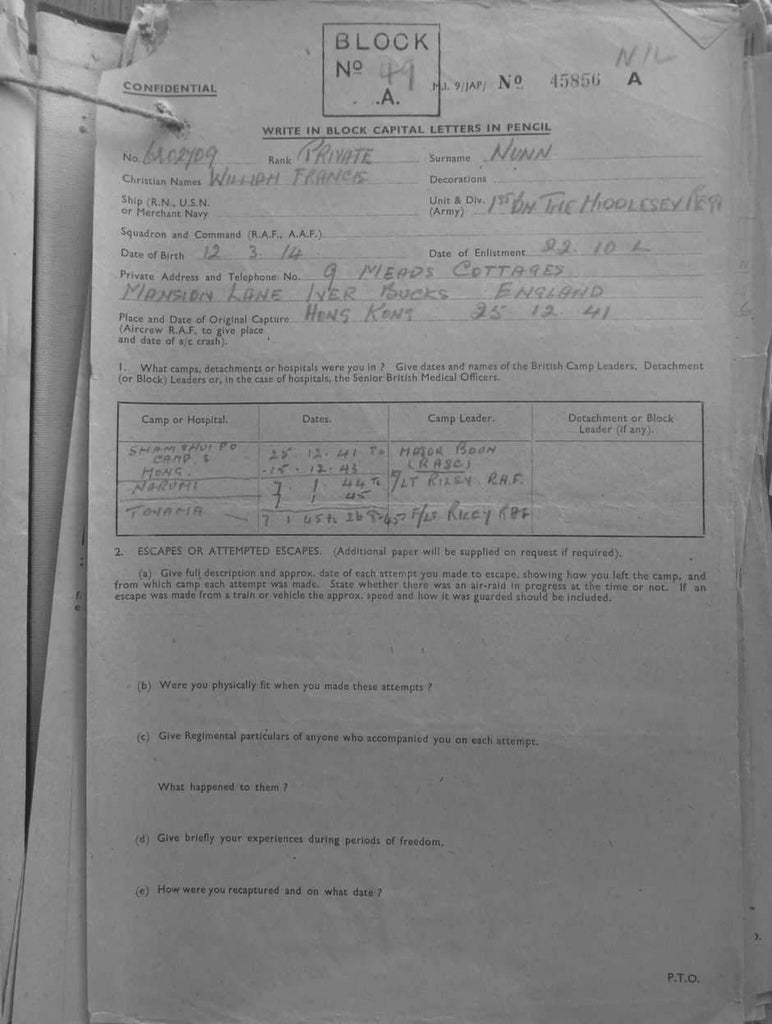 BLOCK
Nº 49
.A.
NIL
CONFIDENTIAL
M.I. 9/JAP/ Nº 45856 A
WRITE IN BLOCK CAPITAL LETTERS IN PENCIL
No. 6202709 Rank PRIVATE Surname NUNN
Christian Names WILLIAM FRANCIS Decorations
Ship (R.N., U.S.N. or Merchant Navy
Unit & Div. (Army) 1ST BN THE MIDDLESEX REGT
Squadron and Command (R.A.F., A.A.F.)
Date of Birth 12 3. 14 Date of Enlistment 22. 10
Private Address and Telephone No. 9 MEADS COTTAGES
MANSION LANE IVER BUCKS ENGLAND
Place and Date of Original Capture HONG KONG 25 12 41
(Aircrew R.A.F. to give place
and date of a/c crash).
1. What camps, detachments or hospitals were you in ? Give dates and names of the British Camp Leaders, Detachment
(or Block) Leaders or, in the case of hospitals, the Senior British Medical Officers.
Camp or Hospital. Dates. Camp Leader. Detachment or Block
Leader (if any).
SHAMSHUI PO 25. 12. 41 TO MAJOR BOON
CAMP, S
HONG. 15. 12. 43 (RASC)
NARUMI 7 1 44 TO F/LT RILEY R.A.F.
1 45
TOYAMA 7 1 45 TO F/LT RILEY RAF
2. ESCAPES OR ATTEMPTED ESCAPES. (Additional paper will be supplied on request if required).
(a) Give full description and approx. date of each attempt you made to escape, showing how you left the camp, and
from which camp each attempt was made. State whether there was an air-raid in progress at the time or not. If an
escape was made from a train or vehicle the approx. speed and how it was guarded should be included.
(b) Were you physically fit when you made these attempts ?
(c) Give Regimental particulars of anyone who accompanied you on each attempt.
What happened to them ?
(d) Give briefly your experiences during periods of freedom.
(e) How were you recaptured and on what date ?
P.T.O.